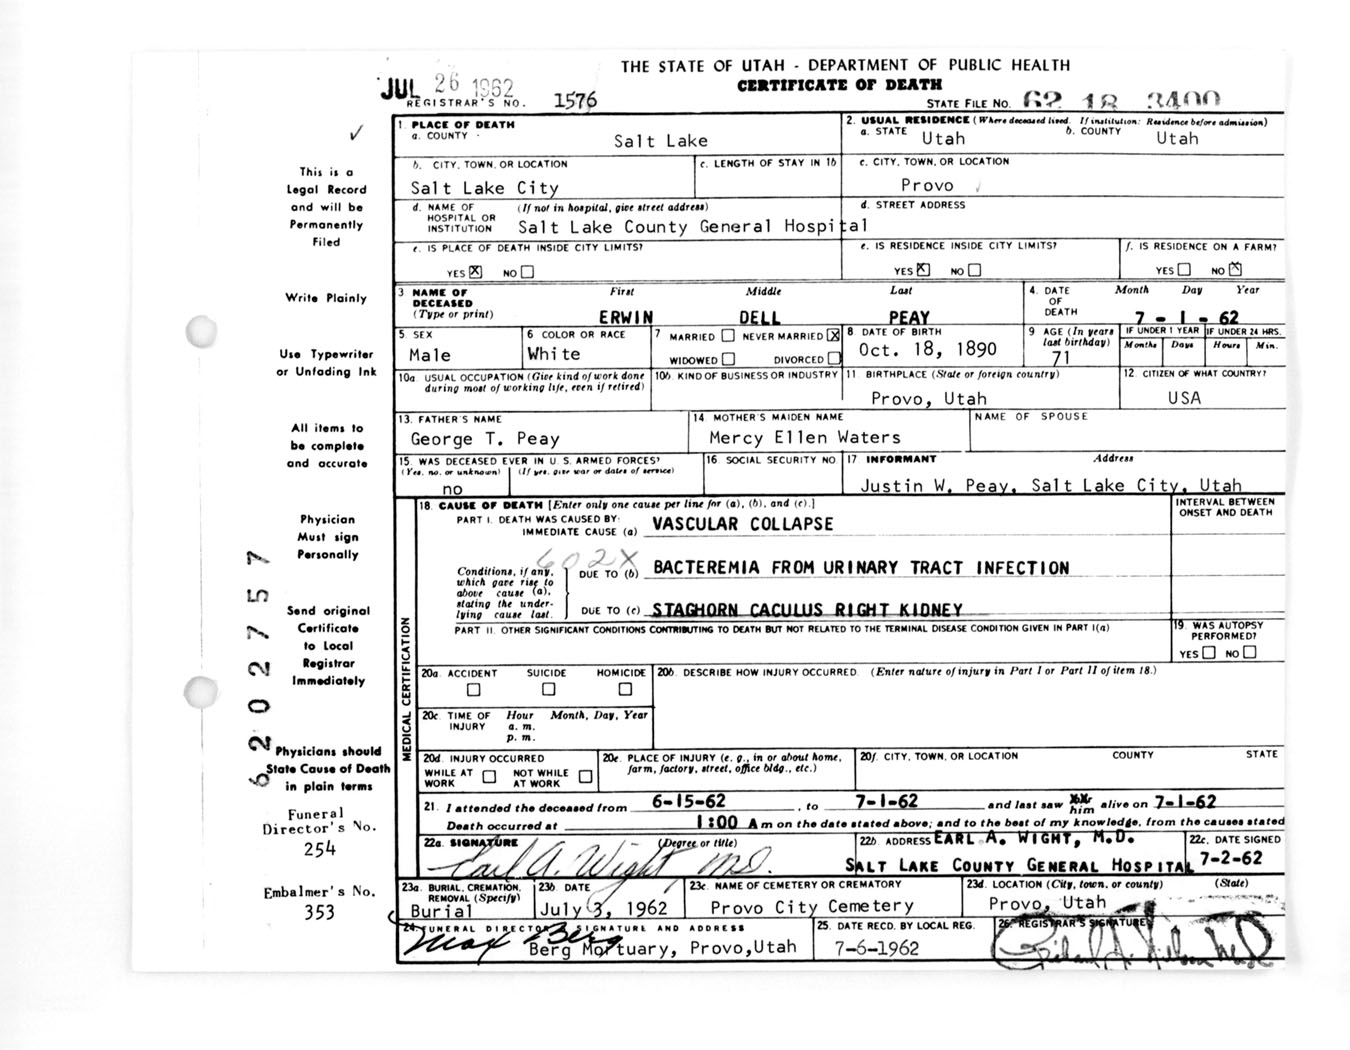 THE STATE OF UTAH - DEPARTMENT OF PUBLIC HEALTH
CERTIFICATE OF DEATH
JUL 26 1962
REGISTRAR'S NO. 1576
STATE FILE NO. 62 18 2400
✓
This is a
Legal Record
and will be
Permanently
Filed
Write Plainly
Use Typewriter
or Unfading Ink
All items to
be complete
and accurate
Physician
Must sign
Personally
Send original
Certificate
to Local
Registrar
Immediately
Physicians should
State Cause of Death
in plain terms
Funeral
Director's No.
254
Embalmer's No.
353
6202757
1. PLACE OF DEATH
a. COUNTY
Salt Lake
2. USUAL RESIDENCE (Where deceased lived. If institution: Residence before admission)
a. STATE Utah b. COUNTY Utah
b. CITY, TOWN, OR LOCATION
Salt Lake City
c. LENGTH OF STAY IN 1b
c. CITY, TOWN, OR LOCATION
Provo
d. NAME OF HOSPITAL OR INSTITUTION (If not in hospital, give street address)
Salt Lake County General Hospital
d. STREET ADDRESS
e. IS PLACE OF DEATH INSIDE CITY LIMITS?
YES X NO
e. IS RESIDENCE INSIDE CITY LIMITS?
YES X NO
f. IS RESIDENCE ON A FARM?
YES NO X
3 NAME OF DECEASED (Type or print)
First Middle Last
ERWIN DELL PEAY
4. DATE OF DEATH Month Day Year
7 - 1 - 62
5. SEX
Male
6 COLOR OR RACE
White
7 MARRIED NEVER MARRIED X
WIDOWED DIVORCED
8 DATE OF BIRTH
Oct. 18, 1890
9 AGE (In years last birthday)
71
IF UNDER 1 YEAR
Months Days
IF UNDER 24 HRS.
Hours Min.
10a. USUAL OCCUPATION (Give kind of work done during most of working life, even if retired)
10b. KIND OF BUSINESS OR INDUSTRY
11 BIRTHPLACE (State or foreign country)
Provo, Utah
12 CITIZEN OF WHAT COUNTRY?
USA
13. FATHER'S NAME
George T. Peay
14. MOTHER'S MAIDEN NAME
Mercy Ellen Waters
NAME OF SPOUSE
15. WAS DECEASED EVER IN U. S. ARMED FORCES?
(Yes, no, or unknown) (If yes, give war or dates of service)
no
16 SOCIAL SECURITY NO.
17 INFORMANT Address
Justin W. Peay, Salt Lake City, Utah
MEDICAL CERTIFICATION
18. CAUSE OF DEATH [Enter only one cause per line for (a), (b), and (c).]
INTERVAL BETWEEN ONSET AND DEATH
PART I. DEATH WAS CAUSED BY:
IMMEDIATE CAUSE (a) VASCULAR COLLAPSE
602X
Conditions, if any, which gave rise to above cause (a), stating the underlying cause last.
DUE TO (b) BACTEREMIA FROM URINARY TRACT INFECTION
DUE TO (c) STAGHORN CACULUS RIGHT KIDNEY
PART II. OTHER SIGNIFICANT CONDITIONS CONTRIBUTING TO DEATH BUT NOT RELATED TO THE TERMINAL DISEASE CONDITION GIVEN IN PART I(a)
19. WAS AUTOPSY PERFORMED?
YES NO
20a. ACCIDENT SUICIDE HOMICIDE
20b. DESCRIBE HOW INJURY OCCURRED. (Enter nature of injury in Part I or Part II of item 18.)
20c. TIME OF INJURY Hour Month, Day, Year
a. m.
p. m.
20d. INJURY OCCURRED
WHILE AT WORK NOT WHILE AT WORK
20e. PLACE OF INJURY (e. g., in or about home, farm, factory, street, office bldg., etc.)
20f. CITY, TOWN, OR LOCATION COUNTY STATE
21. I attended the deceased from 6-15-62, to 7-1-62 and last saw him alive on 7-1-62
Death occurred at 1:00 A m on the date stated above; and to the best of my knowledge, from the causes stated
22a. SIGNATURE (Degree or title)
Earl A. Wight MD.
22b. ADDRESS EARL A. WIGHT, M.D.
SALT LAKE COUNTY GENERAL HOSPITAL
22c. DATE SIGNED
7-2-62
23a. BURIAL, CREMATION, REMOVAL (Specify)
Burial
23b. DATE
July 3, 1962
23c. NAME OF CEMETERY OR CREMATORY
Provo City Cemetery
23d. LOCATION (City, town, or county) (State)
Provo, Utah
24. FUNERAL DIRECTOR'S SIGNATURE AND ADDRESS
Max Berg
Berg Mortuary, Provo, Utah
25. DATE RECD. BY LOCAL REG.
7-6-1962
26. REGISTRAR'S SIGNATURE